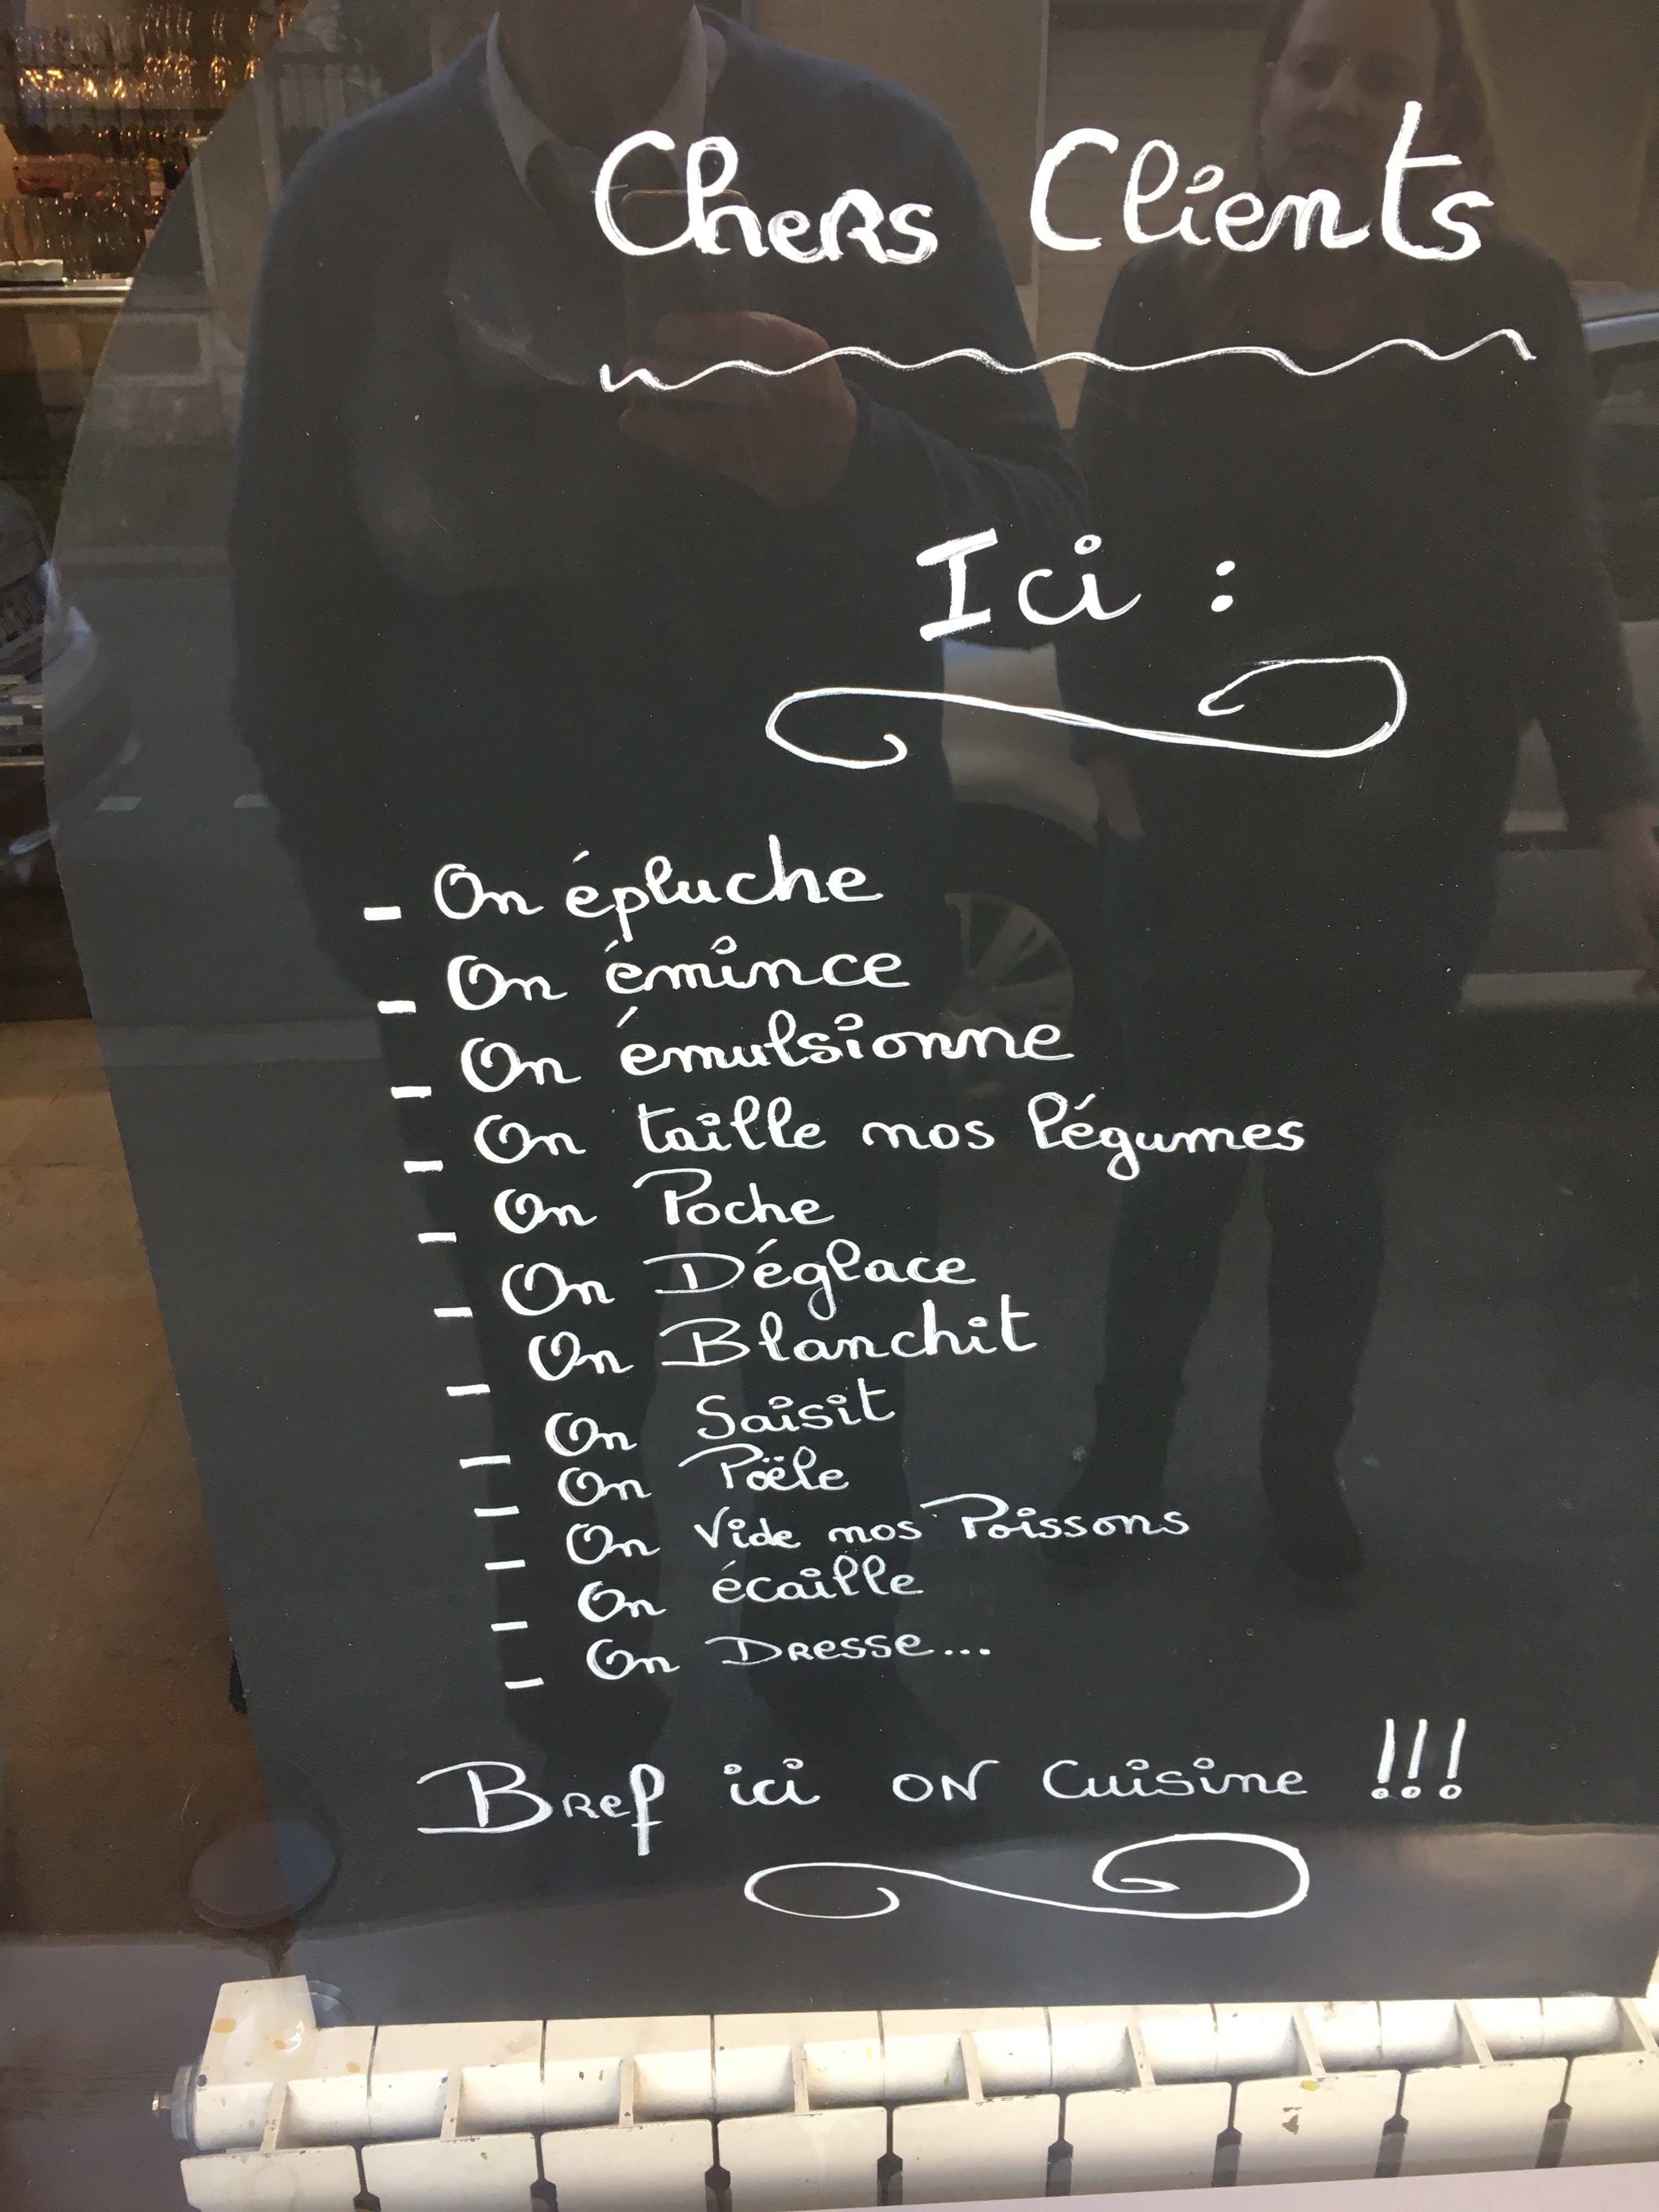 Chers Clients
Ici :
- On épluche
- On émince
- On émulsionne
- On taille nos légumes
- On Poche
- On Déglace
- On Blanchit
- On Saisit
- On Poële
- On Vide nos Poissons
- On écaille
- On Dresse...
Bref ici ON Cuisine !!!